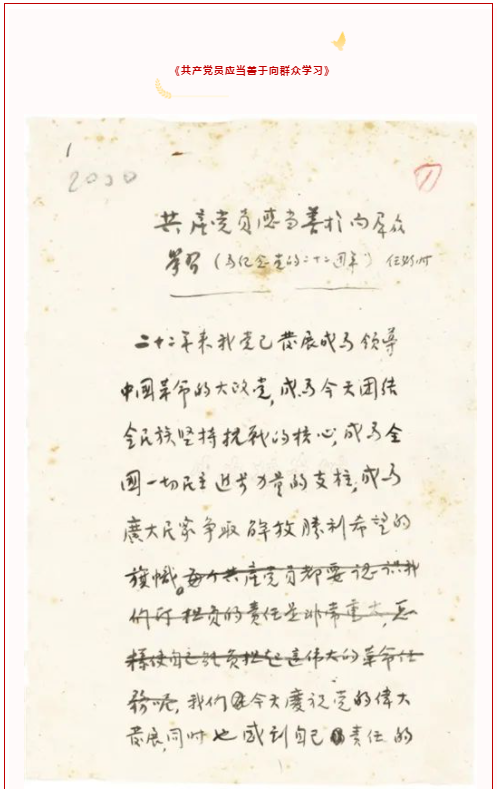 《共产党员应当善于向群众学习》
1
2030
共產党員應当善於向群众
学習（为纪念党的二十二週年）任弼时
二十二年来我党已發展成为领导
中國革命的大政党，成为今天团结
全民族坚持抗战的核心，成为全
國一切民主进步力量的支柱，成为
廣大民众争取解放勝利希望的
旗幟。每个共產党員都要认识我
们所担負的責任是非常重大，怎
樣使自己能負担起這伟大的革命任
務呢，我们在今天慶祝党的偉大
發展，同时也感到自己責任的